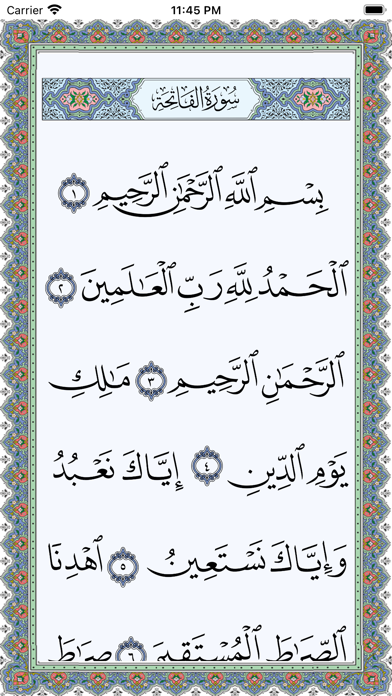 Carrier 11:45 PM
سُورَةُ الفَاتِحَةِ
بِسْمِ ٱللَّهِ ٱلرَّحْمَٰنِ ٱلرَّحِيمِ ١
ٱلْحَمْدُ لِلَّهِ رَبِّ ٱلْعَٰلَمِينَ ٢
ٱلرَّحْمَٰنِ ٱلرَّحِيمِ ٣ مَٰلِكِ
يَوْمِ ٱلدِّينِ ٤ إِيَّاكَ نَعْبُدُ
وَإِيَّاكَ نَسْتَعِينُ ٥ ٱهْدِنَا
ٱلصِّرَٰطَ ٱلْمُسْتَقِيمَ ٦ صِرَٰطَ